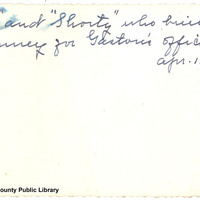 and "Shorty" who
for Gaston's offic
Apr. 1
County Public Library